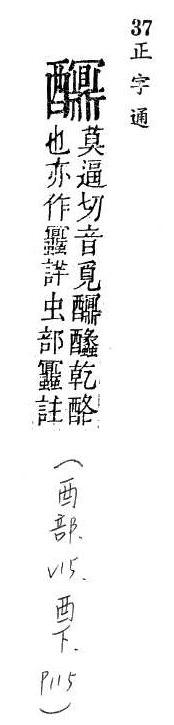 37
正字通
莫逼切音覓乾酪
也亦作詳虫部註
(酉部. V15. 酉下. P115)